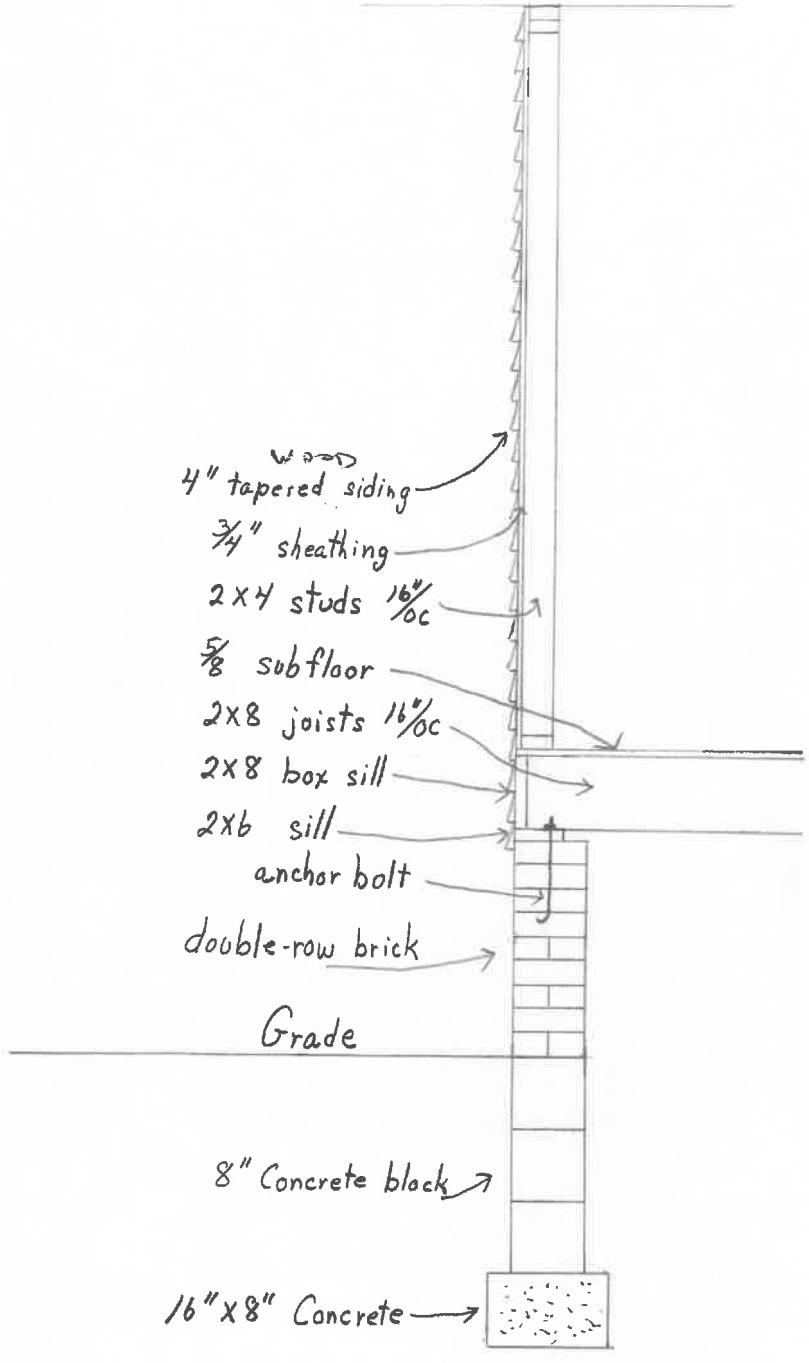 WOOD
4" tapered siding
3/4" sheathing
2x4 studs 16"/OC
5/8 subfloor
2x8 joists 16"/OC
2x8 box sill
2x6 sill
anchor bolt
double-row brick
Grade
8" Concrete block
16"x8" Concrete